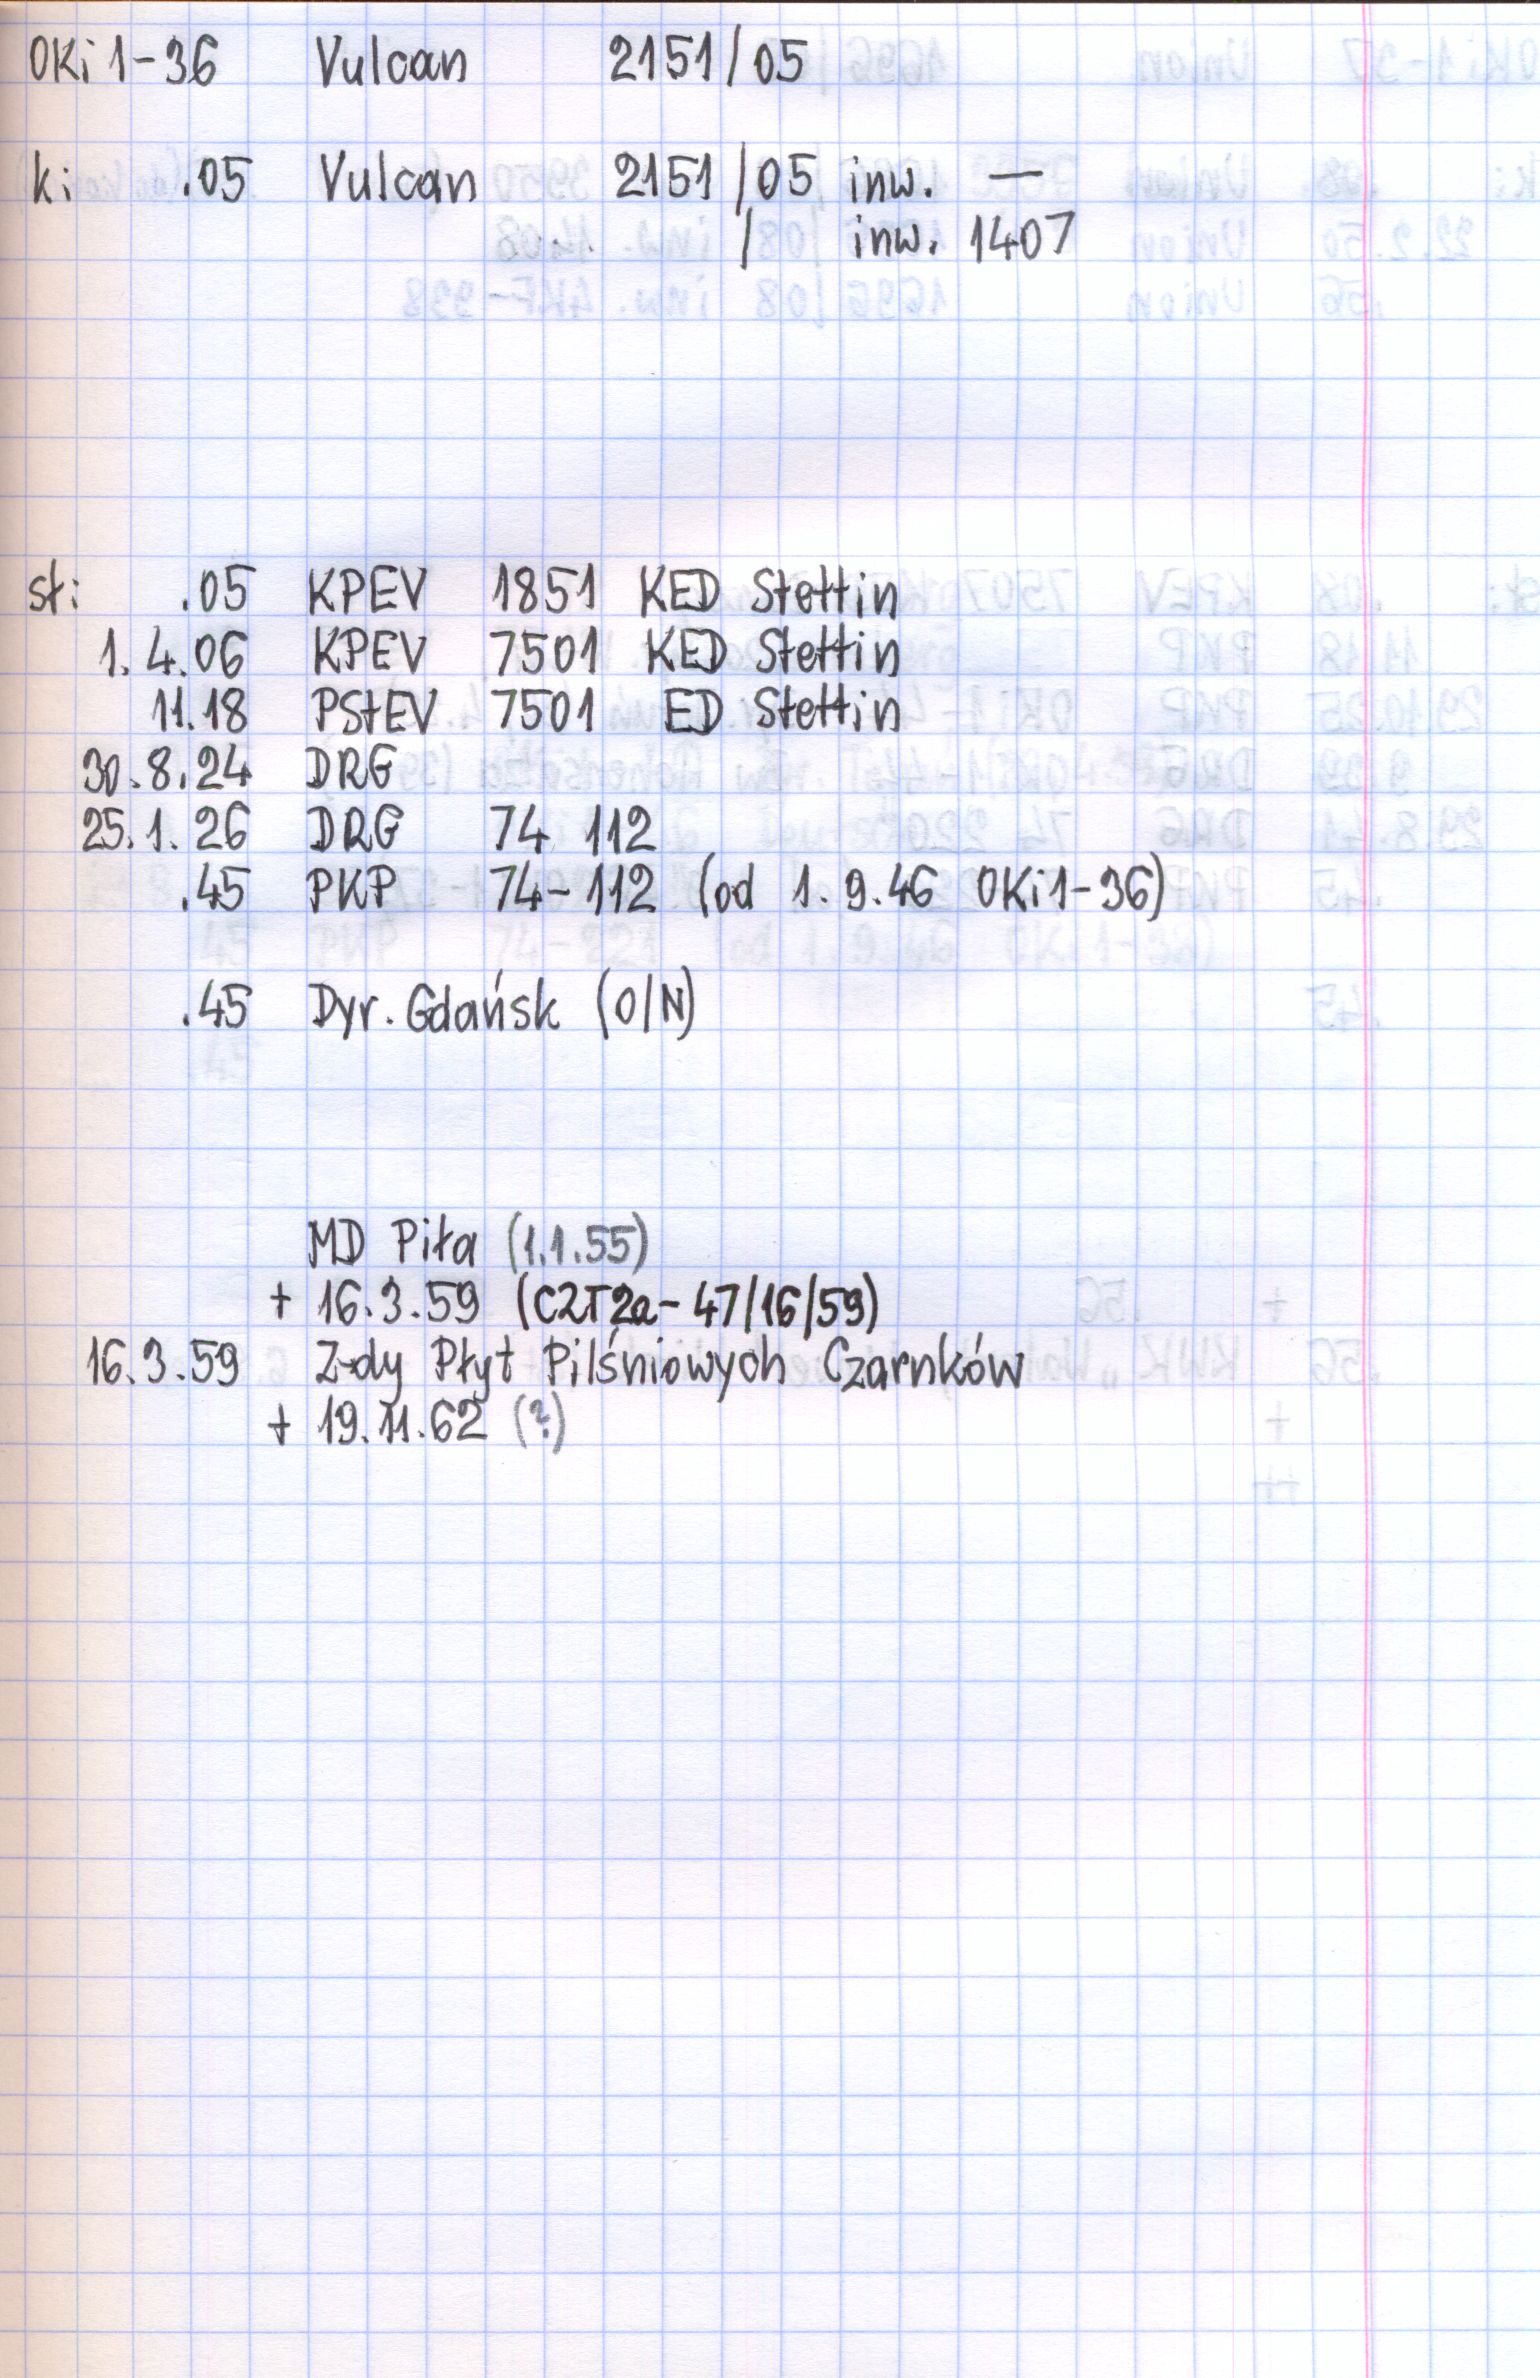 OKi1-36 Vulcan 2151/05
k: .05 Vulcan 2151/05 inw. —
/ inw. 1407
st: .05 KPEV 1851 KED Stettin
1.4.06 KPEV 7501 KED Stettin
11.18 PStEV 7501 ED Stettin
30.8.24 DRG
25.1.26 DRG 74 112
.45 PKP 74-112 (od 1.9.46 OKi1-36)
.45 Dyr. Gdańsk (O/N)
MD Piła (1.1.55)
+ 16.3.59 (CZT2a-47/16/59)
16.3.59 Z-dy Płyt Pilśniowych Czarnków
+ 19.11.62 (?)